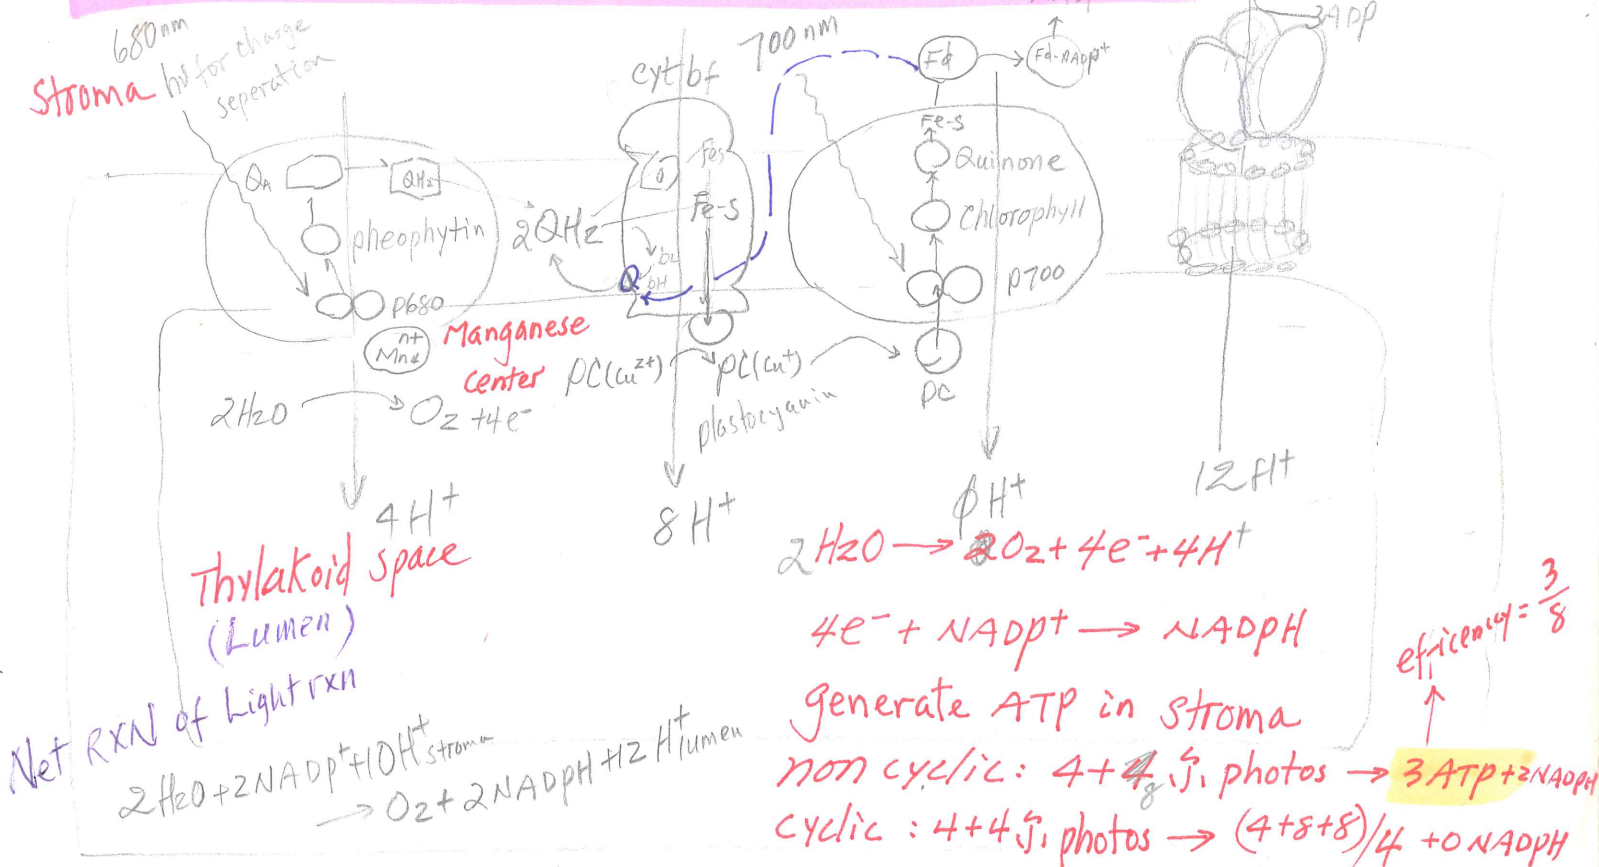 680nm
Stroma hν for charge
seperation
QA
QH2
pheophytin
P680
Mn4 n+
Manganese
center
2H2O → O2 + 4e-
4H+
Thylakoid space
(Lumen)
cyt bf
Fes
Fe-S
2QH2
Q
bL
bH
PC(Cu2+) → PC(Cu+)
plastocyanin
8H+
700nm
Fd → Fd-NADP+
Fe-S
Quinone
Chlorophyll
P700
PC
0H+
3ADP
12H+
2H2O → O2 + 4e- + 4H+
4e- + NADP+ → NADPH
generate ATP in stroma
non cyclic: 4+ photos → 3ATP+2NADPH
efficency = 3/8
cyclic: 4+4 photos → (4+8+8)/4 +0 NADPH
Net RXN of Light rxn
2H2O+2NADP++10H+ stroma
→ O2 + 2NADPH + 12H+ lumen